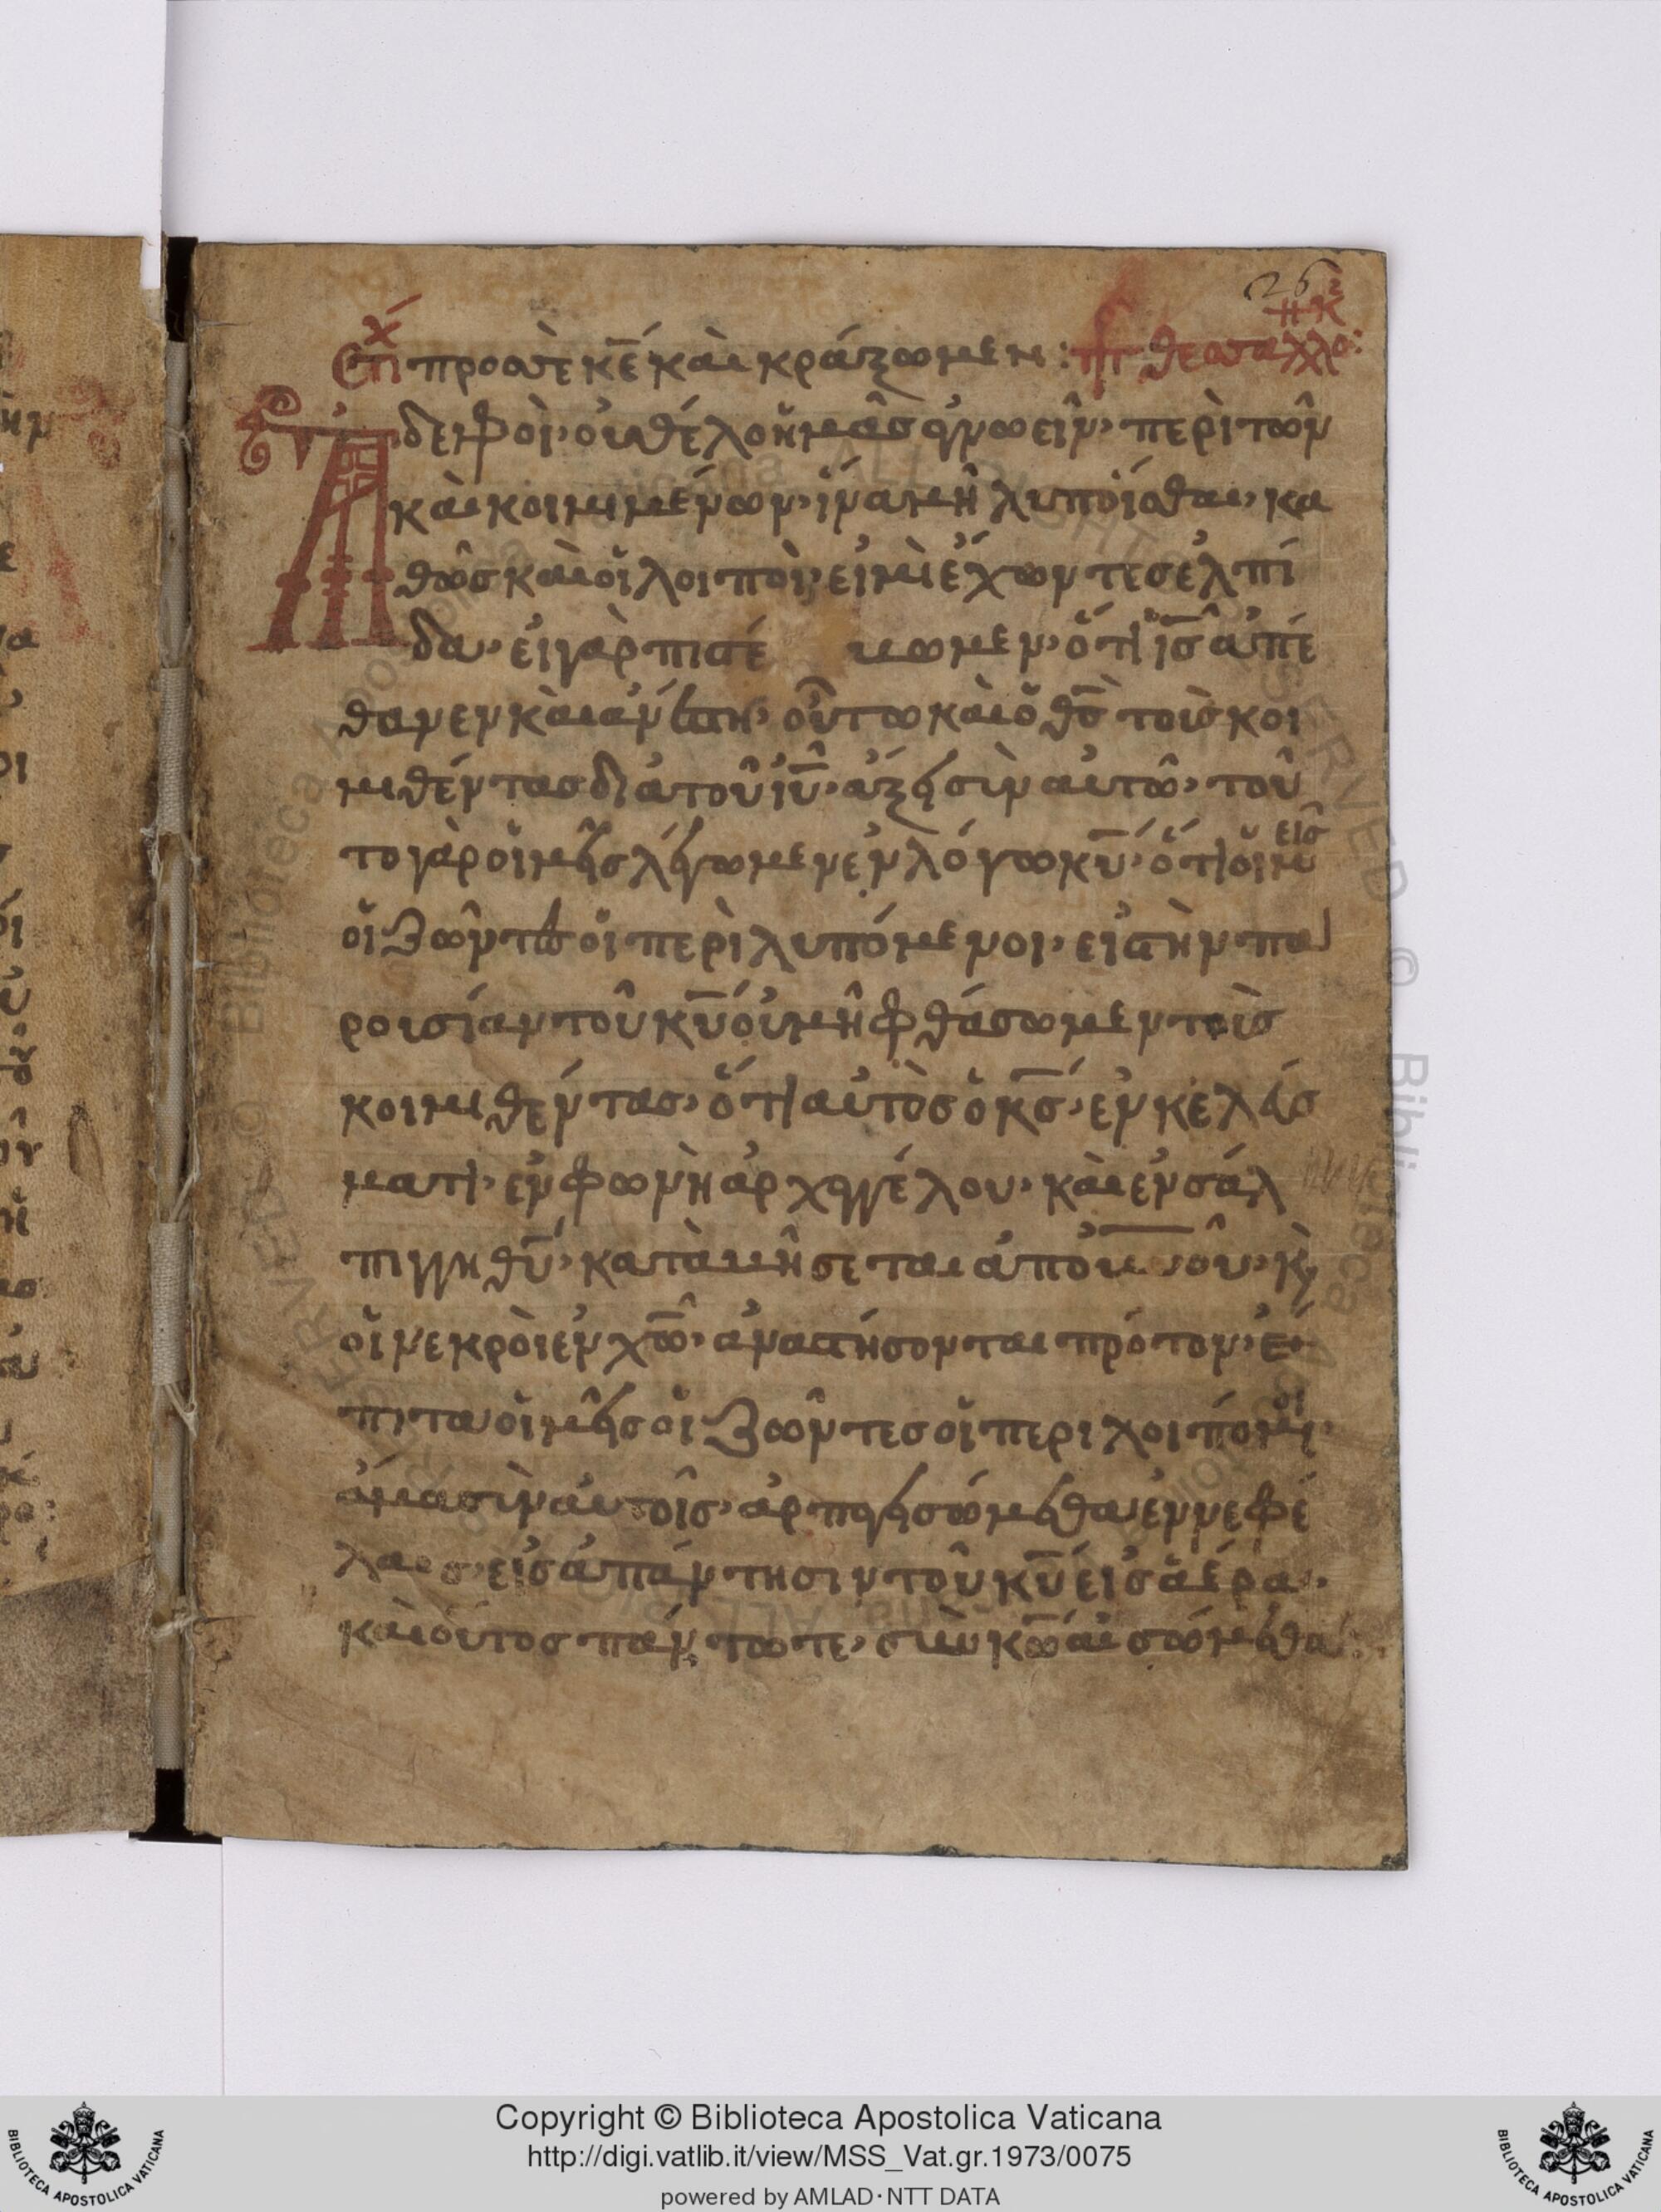 26
Στί χ προσ σὲ κε̅ καὶ κράξωμεν : πρ θεσσαλλο :
Ἀδελφοὶ· οὐ θέλο ἡμᾶσ ἀγνωεῖν· περὶ τῶν
καὶκοιμιμένων· ἵνα μῆ λυποῖσθαι· κα
θῶσ καὶ οἱ λοιποὶ· εἰ μὶ ἔχωντεσ ἐλπί
δα· εἰ γὰρ πιστέ υωμεν· ὅτι ισ̅ ἀπέ
θανεν καὶ ἀνέστη· οὕτω καὶ ὁ θσ̅ τοὺσ κοι
μιθέντασ διὰ τοῦ ιυ̅· ἄξει σὺν αὐτῶ· τοῦ
το γὰρ οἱμεῖσ λέγωμεν ἐν λόγω κυ̅· ὅτι οἱμεῖσ
οἱ ζῶντεσ οἱ περὶλυπόμενοι· εἰσ τὴν πα
ρουσίαν τοῦ κυ̅ οὐ μῆ φθάσωμεν τοὺσ
κοιμιθέντασ· ὅτι αὐτὸσ ὁ κσ̅· ἐν κελάσ
ματι· ἐν φωνὴ ἀρχαγγέλου· καὶ ἐν σάλ
πιγγη θυ̅· καταβῆσεται ἀπὸ ουνου· κ̀
οἱ νεκροὶ ἐν χω̅· ἀναστήσονται πρότον· ἔ
πιτα οἱμεῖσ οἱ ζῶντεσ οἱ περιλοιπόμενοι·
ἄμα σὺν αὐτοῖσ· ἁρπαγεισώμεθα ἐν νεφέ
λαισ· εἰσ ἀπάντησιν τοῦ κυ̅ εἰσ ἀέρα·
καὶ οὕτοσ πάντωτε· σὺν κω̅ αἰσώμεθα :
Copyright © Biblioteca Apostolica Vaticana
http://digi.vatlib.it/view/MSS_Vat.gr.1973/0075
powered by AMLAD·NTT DATA
BIBLIOTECA APOSTOLICA VATICANA
BIBLIOTECA APOSTOLICA VATICANA